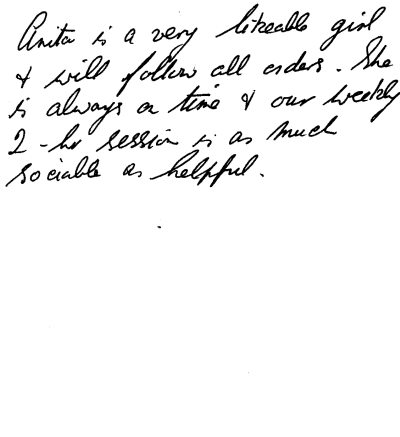 Anita is a very likeable girl
& will follow all orders. She
is always on time & our weekly
2-hr session is as much
sociable as helpful.